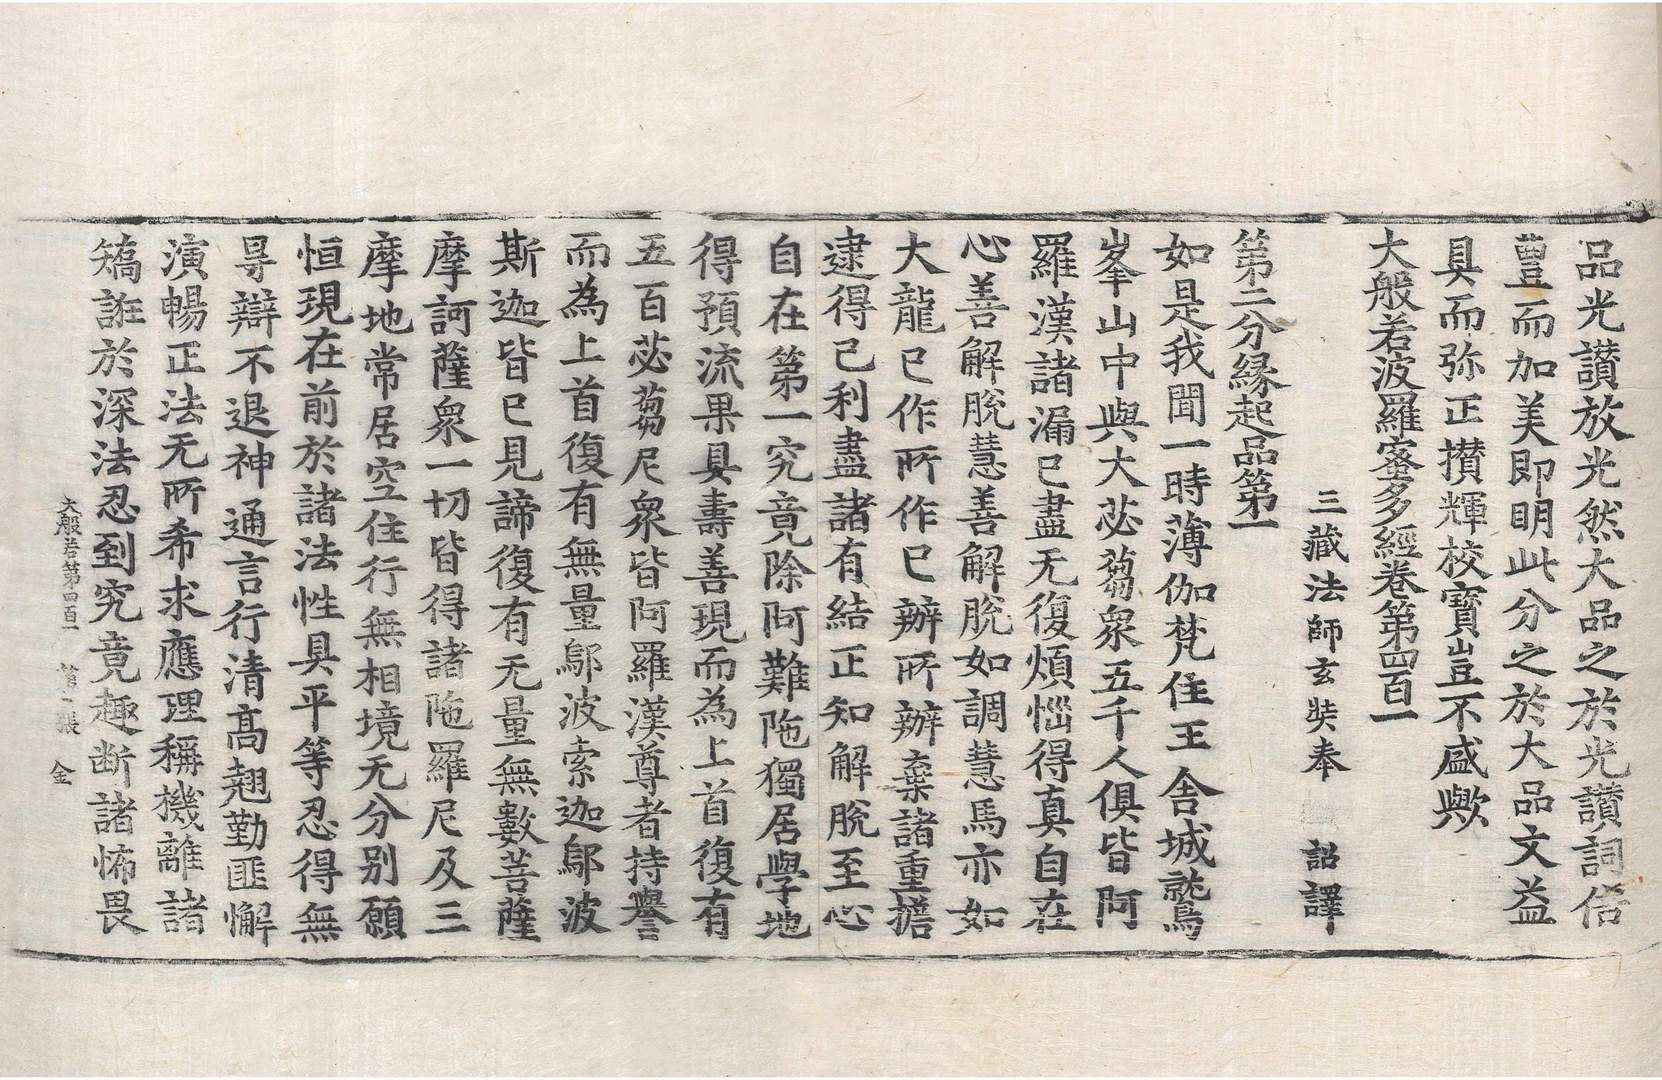 品光讃放光然大品之於光讃詞倍
豊而加美即明此分之於大品文益
具而弥正攅輝校寶豈不盛歟
大般若波羅蜜多經卷第四百一
三藏法師玄奘奉 詔譯
第二分縁起品第一
如是我聞一時薄伽梵住王舍城鷲
峯山中與大苾蒭衆五千人俱皆阿
羅漢諸漏已盡无復煩惱得真自在
心善解脫慧善解脫如調慧馬亦如
大龍已作所作已辦所辦棄諸重擔
逮得己利盡諸有結正知解脫至心
自在第一究竟除阿難陁獨居學地
得預流果具壽善現而為上首復有
五百苾蒭尼衆皆阿羅漢尊者持譽
而為上首復有無量鄔波索迦鄔波
斯迦皆已見諦復有无量無數菩薩
摩訶薩衆一切皆得諸陁羅尼及三
摩地常居空住行無相境无分別願
恒現在前於諸法性具平等忍得無
㝵辯不退神通言行清高翹勤匪懈
演暢正法无所希求應理稱機離諸
矯誑於深法忍到究竟趣断諸怖畏
大般若第四百一 第二張 金